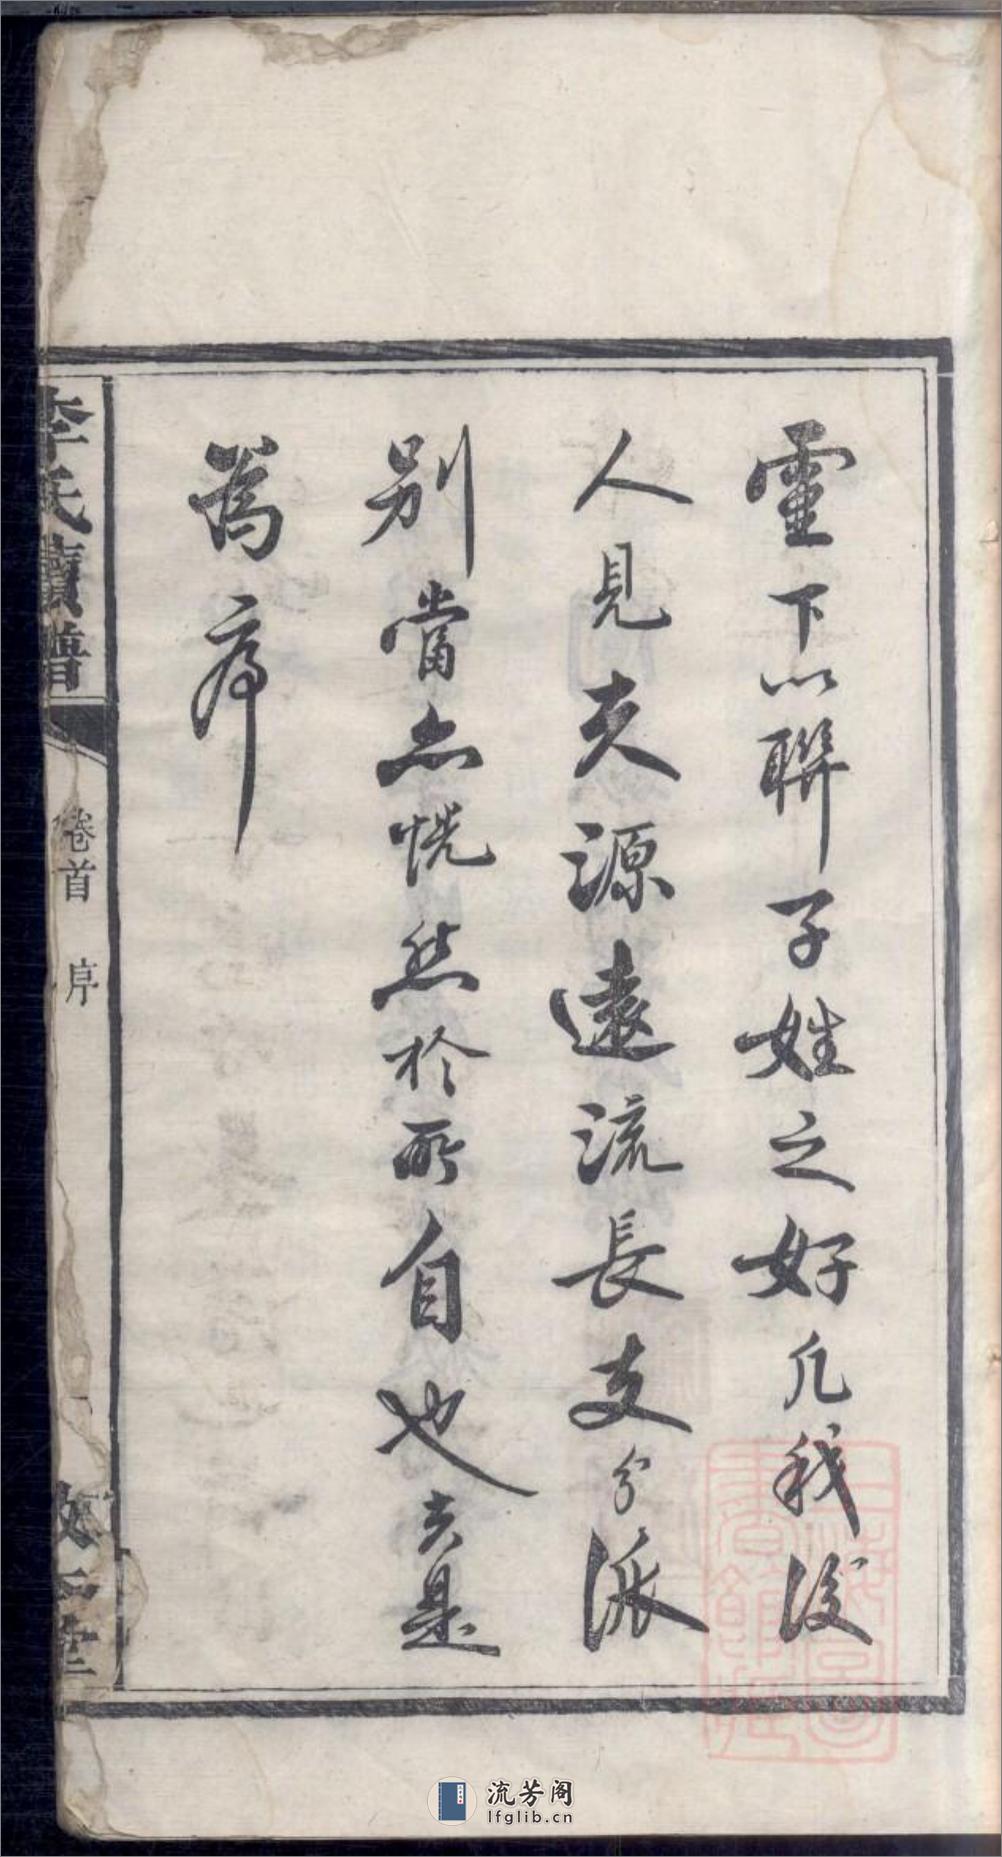 靈下以聯子姓之好凡我後
人見夫源遠流長支分派
別當亦恍然於所自也夫是
為序
李氏續譜
卷首 序
一
敦仁堂
流芳阁
lfglib.cn